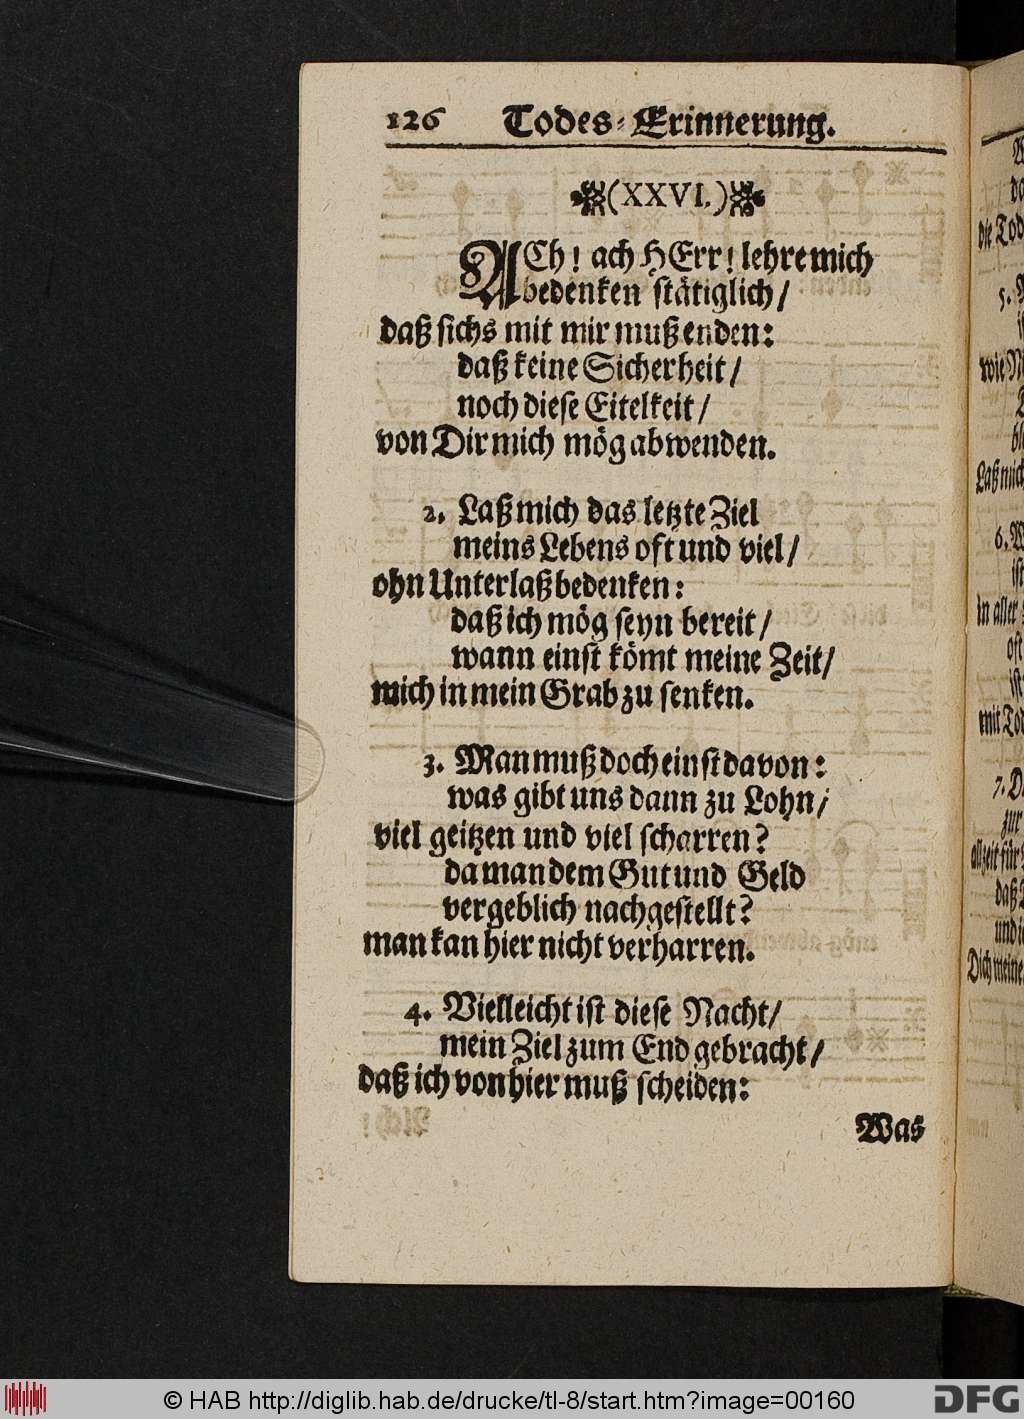 126 Todes-Erinnerung.
(XXVI.)
ACh! ach HErr! lehre mich
bedenken stätiglich/
daß sichs mit mir muß enden:
daß keine Sicherheit/
noch diese Eitelkeit/
von Dir mich mög abwenden.
2. Laß mich das letzte Ziel
meins Lebens oft und viel/
ohn Unterlaß bedenken:
daß ich mög seyn bereit/
wann einst kömt meine Zeit/
mich in mein Grab zu senken.
3. Man muß doch einst davon:
was gibt uns dann zu Lohn/
viel geitzen und viel scharren?
da man dem Gut und Geld
vergeblich nachgestellt?
man kan hier nicht verharren.
4. Vielleicht ist diese Nacht/
mein Ziel zum End gebracht/
daß ich von hier muß scheiden:
Was
die Tod
5.
wie
Laß mich
6.
in aller
oft
mit Tod
7.
zur
allzeit für
daß
und
Dich meine
© HAB http://diglib.hab.de/drucke/tl-8/start.htm?image=00160
DFG